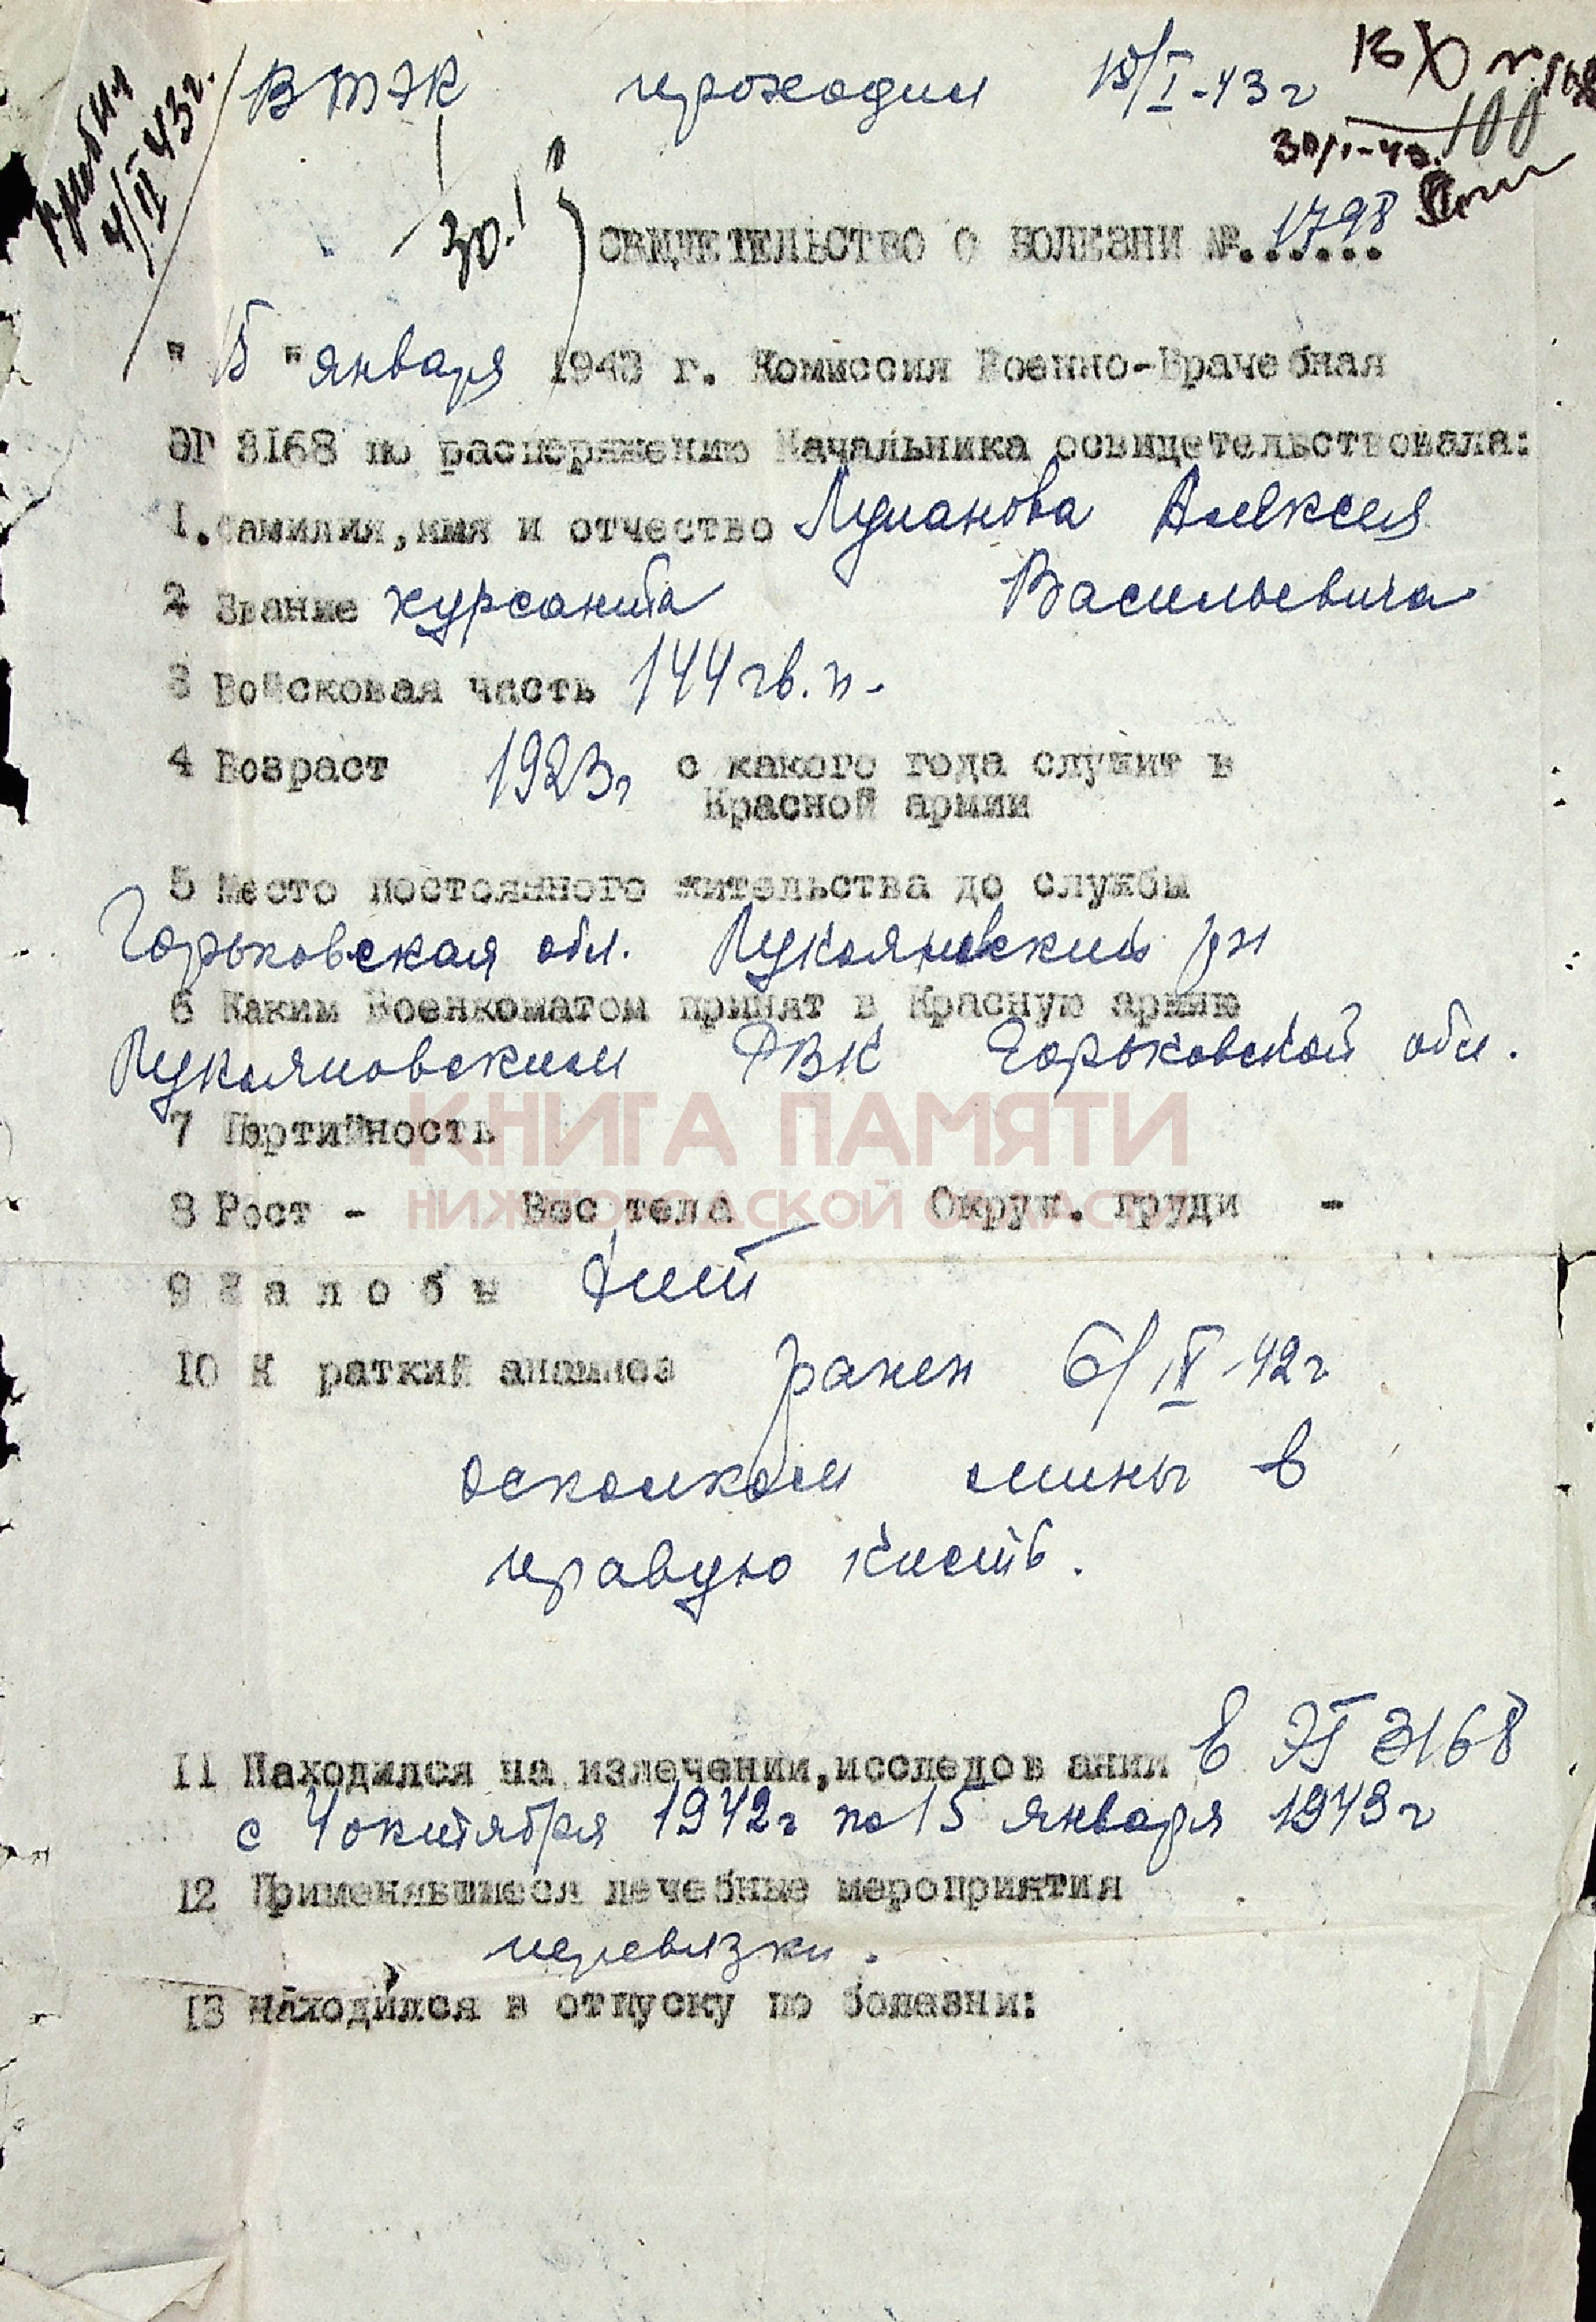 прибыл
4/II 43г.
ВТЭК проходил 15/I-43г
100
30/I-43.
30.I
СВИДЕТЕЛЬСТВО О БОЛЕЗНИ №.1798
" 15 " января 1943 г. Комиссия Военно-Врачебная
ЭГ 3168 по распоряжению Начальника освидетельствовала:
1. Фамилия, имя и отчество Луланова Алексея
Васильевича
2 Звание курсанта
3 Войсковая часть 144 гв. п-
4 Возраст 1923г с какого года служит в
Красной армии
5 Место постоянного жительства до службы
Горьковская обл. Лукояновский рн
6 Каким Военкоматом принят в Красную армию
Лукояновским РВК Горьковской обл.
7 Партийность
КНИГА ПАМЯТИ
НИЖЕГОРОДСКОЙ ОБЛАСТИ
8 Рост - Вес тела Окруж. груди -
9 Ж а л о б ы
10 К раткий анамноз ранен 6/IV-42г
осколком мины в
правую кисть.
11 Находился на излечении, исследов ании в ЭГ 3168
с 4 октября 1942г по 15 января 1943г
12 Применявшиеся лечебные мероприятия
перевязки.
13 Находился в отпуску по болезни: